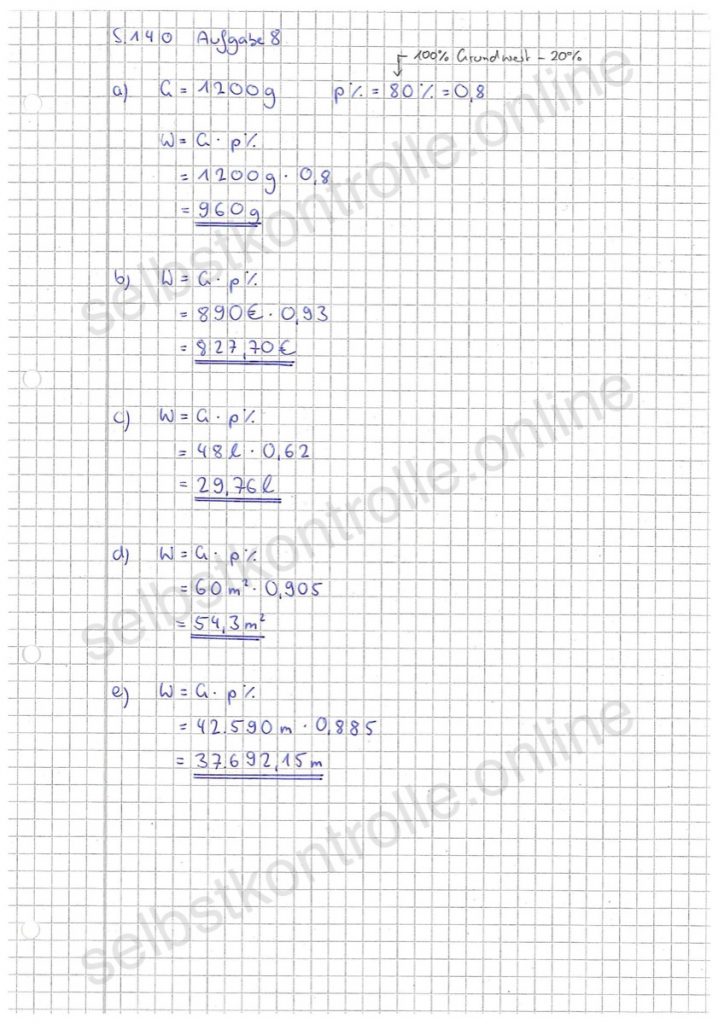 S.140 Aufgabe 8
100% Grundwert - 20%
a) G = 1200g p% = 80% = 0,8
W = G · p%
= 1200g · 0,8
= 960g
b) W = G · p%
= 890€ · 0,93
= 827,70€
c) W = G · p%
= 48l · 0,62
= 29,76l
d) W = G · p%
= 60 m² · 0,905
= 54,3 m²
e) W = G · p%
= 42.590 m · 0,885
= 37.692,15 m
selbstkontrolle.online
selbstkontrolle.online
selbstkontrolle.online